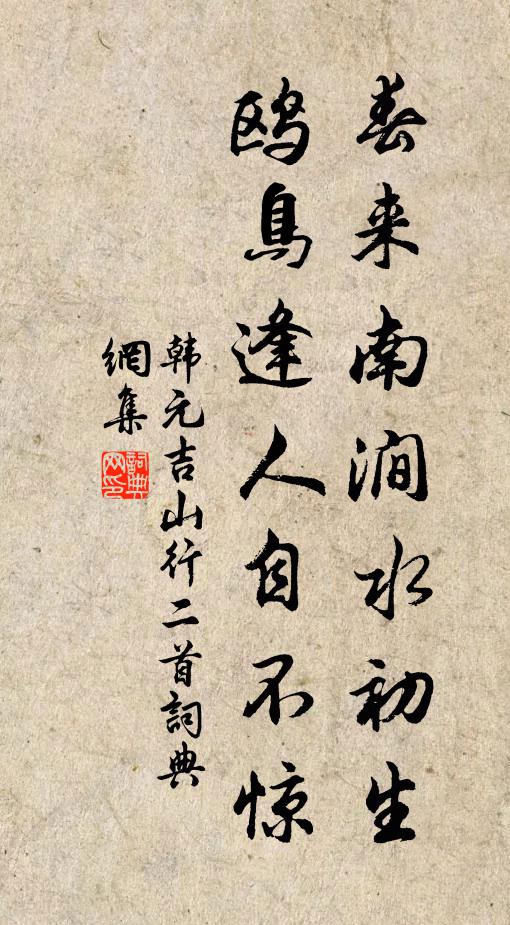 春来南涧水初生
鸥鳥逢人自不惊
韩元吉山行二首詞典
網集
詞典网印